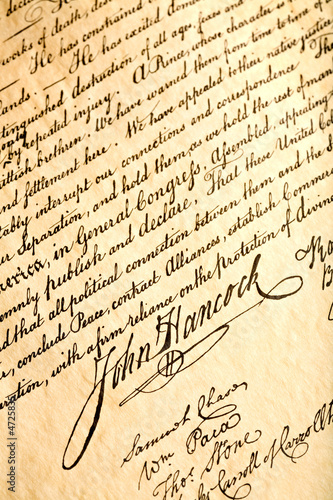 works of death, des
He has constrained
ands. — He has excited domes
tinguished destruction of all ages, sexes and
by repeated injury. A Prince, whose character is
Brittish brethren. We have warned them from time to time of
and settlement here. We have appealed to their native justice
tably interrupt our connections and correspondence. The
our Separation, and hold them, as we hold the rest of man
merica, in General Congress, Assembled, appealing
emnly publish and declare, That these United Col
nd that all political connection between them and the S
r, conclude Peace, contract Alliances, establish Commer
aration, with a firm reliance on the protection of divin
John Hancock
Samuel Chase
Wm Paca
Thos. Stone
Carroll of Carrollt
Adobe Stock | #4725835